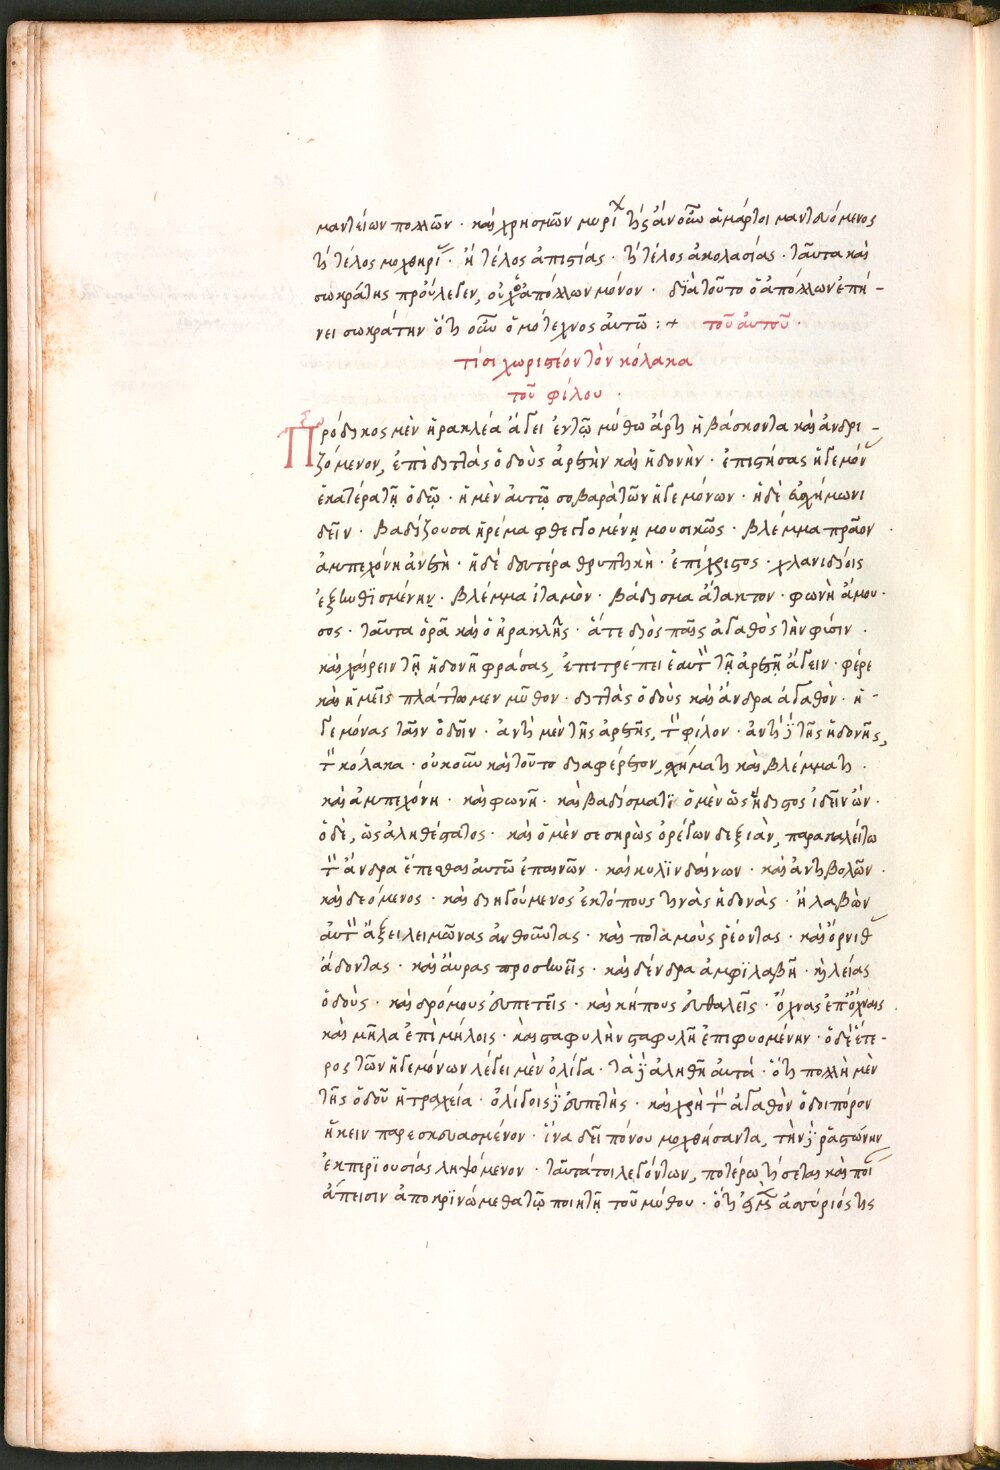 μαντείων πολλῶν · καὶ χρησμῶν μυρί τίς ἂν οὖν ἁμάρτοι μαντευόμενος
τί τέλος μοχθηρί · ἢ τέλος ἀπιστίας · τί τέλος ἀκολασίας · ταῦτα καὶ
σωκράτης προὔλεγεν, οὐχ ὁ ἀπόλλων μόνον · διὰ τοῦτο ὁ ἀπόλλων ἐπή-
νει σωκράτην ὅτι οὖν ὁμότεχνος αὐτῶ :+ τοῦ αὐτοῦ ·
τίσι χωριστέον τὸν κόλακα
τοῦ φίλου ·
Πρόδικος μὲν ἡρακλέα ἄγει ἐν τῷ μύθω ἄρτι ἡβάσκοντα καὶ ἀνδρι-
ζόμενον, ἐπὶ διττὰς ὁδοὺς ἀρετὴν καὶ ἡδονὴν · ἐπιστήσας ἡγεμόν
ἑκατέρα τῇ ὁδῷ · ἡ μὲν αὐτῷ σοβαρὰ τῶν ἡγεμόνων · ἡ δὲ εὐσχήμων ι
δεῖν · βαδίζουσα ἠρέμα φθεγγομένη μουσικῶς · βλέμμα πρᾶον ·
ἀμπεχόνη ἀνετὴ · ἡ δὲ δευτέρα θρυπτικὴ · ἐπίχριστος · χλανιδίοις
ἐξωθϊσμένην · βλέμμα ἰταμὸν · βάδισμα ἄτακτον · φωνὴ ἄμου·
σος · ταῦτα ὁρᾶ καὶ ὁ ἡρακλῆς · ἅτε διὸς παῖς ἀγαθὸς τὴν φύσιν ·
καὶ χαίρειν τῇ ἡδονῇ φράσας, ἐπιτρέπει ἑαυτὸν τῇ ἀρετῇ ἄγειν · φέρε
καὶ ἡμεῖς πλάττωμεν μῦθον · διττὰς ὁδοὺς καὶ ἄνδρα ἀγαθὸν · ἡ-
γεμόνας ταῖν ὁδοῖν · ἀντὶ μὲν τῆς ἀρετῆς, τὸν φίλον · ἀντὶ δὲ τῆς ἡδονῆς,
τὸν κόλακα · οὐκοῦν καὶ τοῦτο διαφέρετον, σχήματι καὶ βλέμματι ·
καὶ ἀμπεχόνη · καὶ φωνῆ · καὶ βαδίσματϊ ὁ μὲν ὡς ἥδιστος ἰδεῖν ὢν ·
ὁ δὲ, ὡς ἀληθέστατος · καὶ ὁ μὲν σεσηρὼς ὀρέγων δεξιὰν, παρακαλείτω
τὸν ἄνδρα ἕπεσθαι αὐτῶ ἐπαινῶν · καὶ κυλϊνδαίνων · καὶ ἀντιβολῶν ·
καὶ δεόμενος · καὶ διηγούμενος ἐκτόπους τινὰς ἡδονὰς · ἡ λαβὼν
αὐτὸν ἄξει λειμῶνας ἀνθοῦντας · καὶ ποταμοὺς ῥέοντας · καὶ ὄρνιθ
ἄδοντας · καὶ αὔρας προσηνεῖς · καὶ δένδρα ἀμφϊλαβῆ · κὴ λείας
ὁδοὺς · καὶ δρόμους εὐπετεῖς · καὶ κήπους εὐθαλεῖς · ὄχνας ἐπ' ὄχναις ·
καὶ μῆλα ἐπὶ μήλοις · καὶ σταφυλὴν σταφυλῆ ἐπιφυομένην · ὁ δὲ ἕτε-
ρος τῶν ἡγεμόνων λέγει μὲν ὀλίγα · τὰ δὲ ἀληθῆ αὐτὰ · ὅτι πολλὴ μὲν
τῆς ὁδοῦ ἡ τραχεία · ὀλίγοις δὲ εὐπετὴς · καὶ χρὴ τὸν ἀγαθὸν ὁδοιπόρον
ἥκειν παρεσκευασμένον · ἵνα δεῖ πόνου μοχθήσαντα, τὴν δὲ ῥᾳστώνην
ἐκ περϊουσίας ληψόμενον · ταῦτά τοι λεγόντων, ποτέρω τίσεται καὶ ποῖ
ἄπεισιν ἀποκρϊνώμεθα τῷ ποιητῇ τοῦ μύθου · ὅτι ἀσσύριός τις